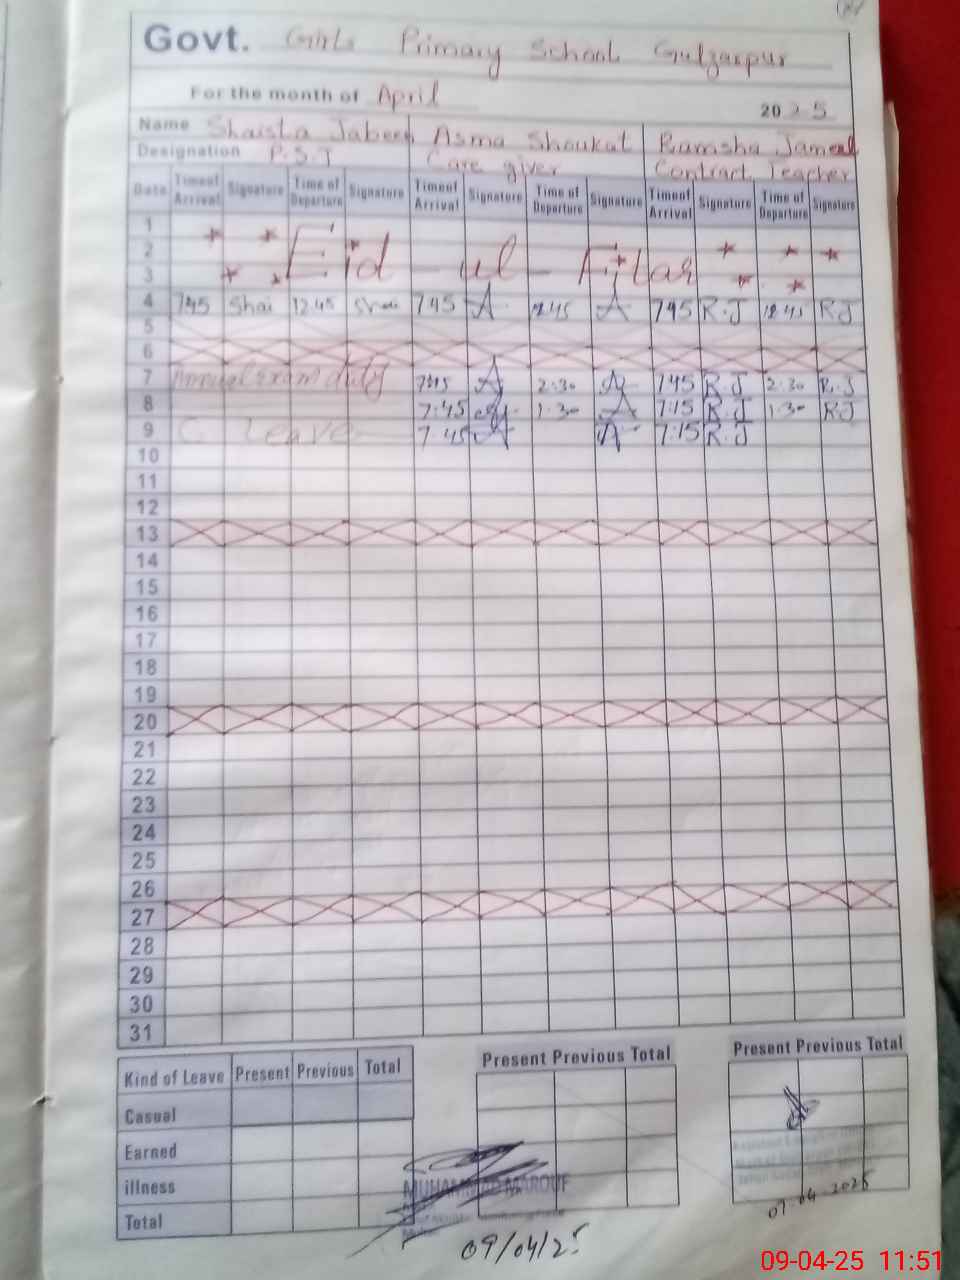 Govt. Girls Primary School Gulzarpur
For the month of April 2025
Name Shaista Jabeen Asma Shoukat Ramsha Jameel
Designation P.S.T Care giver Contract Teacher
Date Time of Arrival Signature Time of Departure Signature Time of Arrival Signature Time of Departure Signature Time of Arrival Signature Time of Departure Signature
1
2 Eid - ul - Fitar
3
4 7:45 Shai 12:45 Shai 7:45 A 12:45 A 7:45 R.J 12:45 R.J
5
6
7 Annual exam duty 7:45 A 2:30 A 7:45 R.J 2:30 R.J
8 7:45 A 1:30 A 7:15 R.J 1:30 R.J
9 C. Leave 7:45 A A 7:15 R.J
10
11
12
13
14
15
16
17
18
19
20
21
22
23
24
25
26
27
28
29
30
31
Kind of Leave Present Previous Total Present Previous Total Present Previous Total
Casual
Earned
illness
Total
MUHAMMAD MAROUF
09/04/25
07-04-2025
09-04-25 11:51